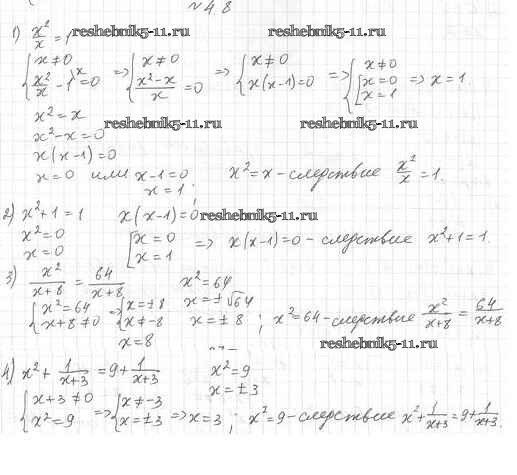 № 4.8
1) x²/x = 1 reshebnik5-11.ru reshebnik5-11.ru
{ x ≠ 0 ; x²/x − 1 \x = 0 => { x ≠ 0 ; (x² − x)/x = 0 => { x ≠ 0 ; x(x−1) = 0 => { x ≠ 0 ; [ x = 0 ; x = 1 => x = 1.
x² = x
reshebnik5-11.ru reshebnik5-11.ru
x² − x = 0
x(x−1) = 0
x = 0 или x − 1 = 0 ; x² = x − следствие x²/x = 1.
x = 1
2) x² + 1 = 1 x(x−1) = 0 reshebnik5-11.ru
x² = 0 [ x = 0 ; x = 1 => x(x−1) = 0 − следствие x² + 1 = 1.
x = 0
3) x²/(x+8) = 64/(x+8) x² = 64
{ x² = 64 ; x + 8 ≠ 0 => { x = ±8 ; x ≠ −8 x = ±√64
x = ±8 ; x² = 64 − следствие x²/(x+8) = 64/(x+8)
x = 8
reshebnik5-11.ru
4) x² + 1/(x+3) = 9 + 1/(x+3) x² = 9
x = ±3
{ x + 3 ≠ 0 ; x² = 9 => { x ≠ −3 ; x = ±3 => x = 3 ; x² = 9 − следствие x² + 1/(x+3) = 9 + 1/(x+3).